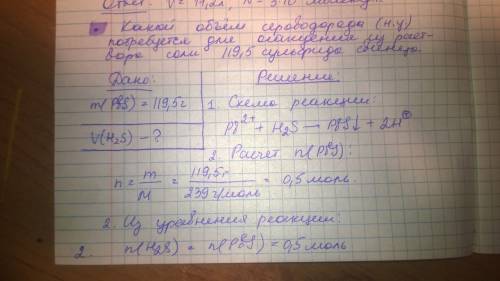 Ответ: V = 11,2л, N = 3·10 молекул.
Какой объём сероводорода (н.у)
потребуется для осаждения из раст-
вора соли 119,5 сульфида свинца.
Дано:
Решение:
m(PbS) = 119,5г
V(H₂S) - ?
1. Схема реакции:
Pb²⁺ + H₂S → PbS↓ + 2H⁺
2. Расчет n(PbS):
n = m/M = 119,5г/239г/моль = 0,5 моль.
2. Из уравнения реакции:
2. n(H₂S) = n(PbS) = 0,5 моль